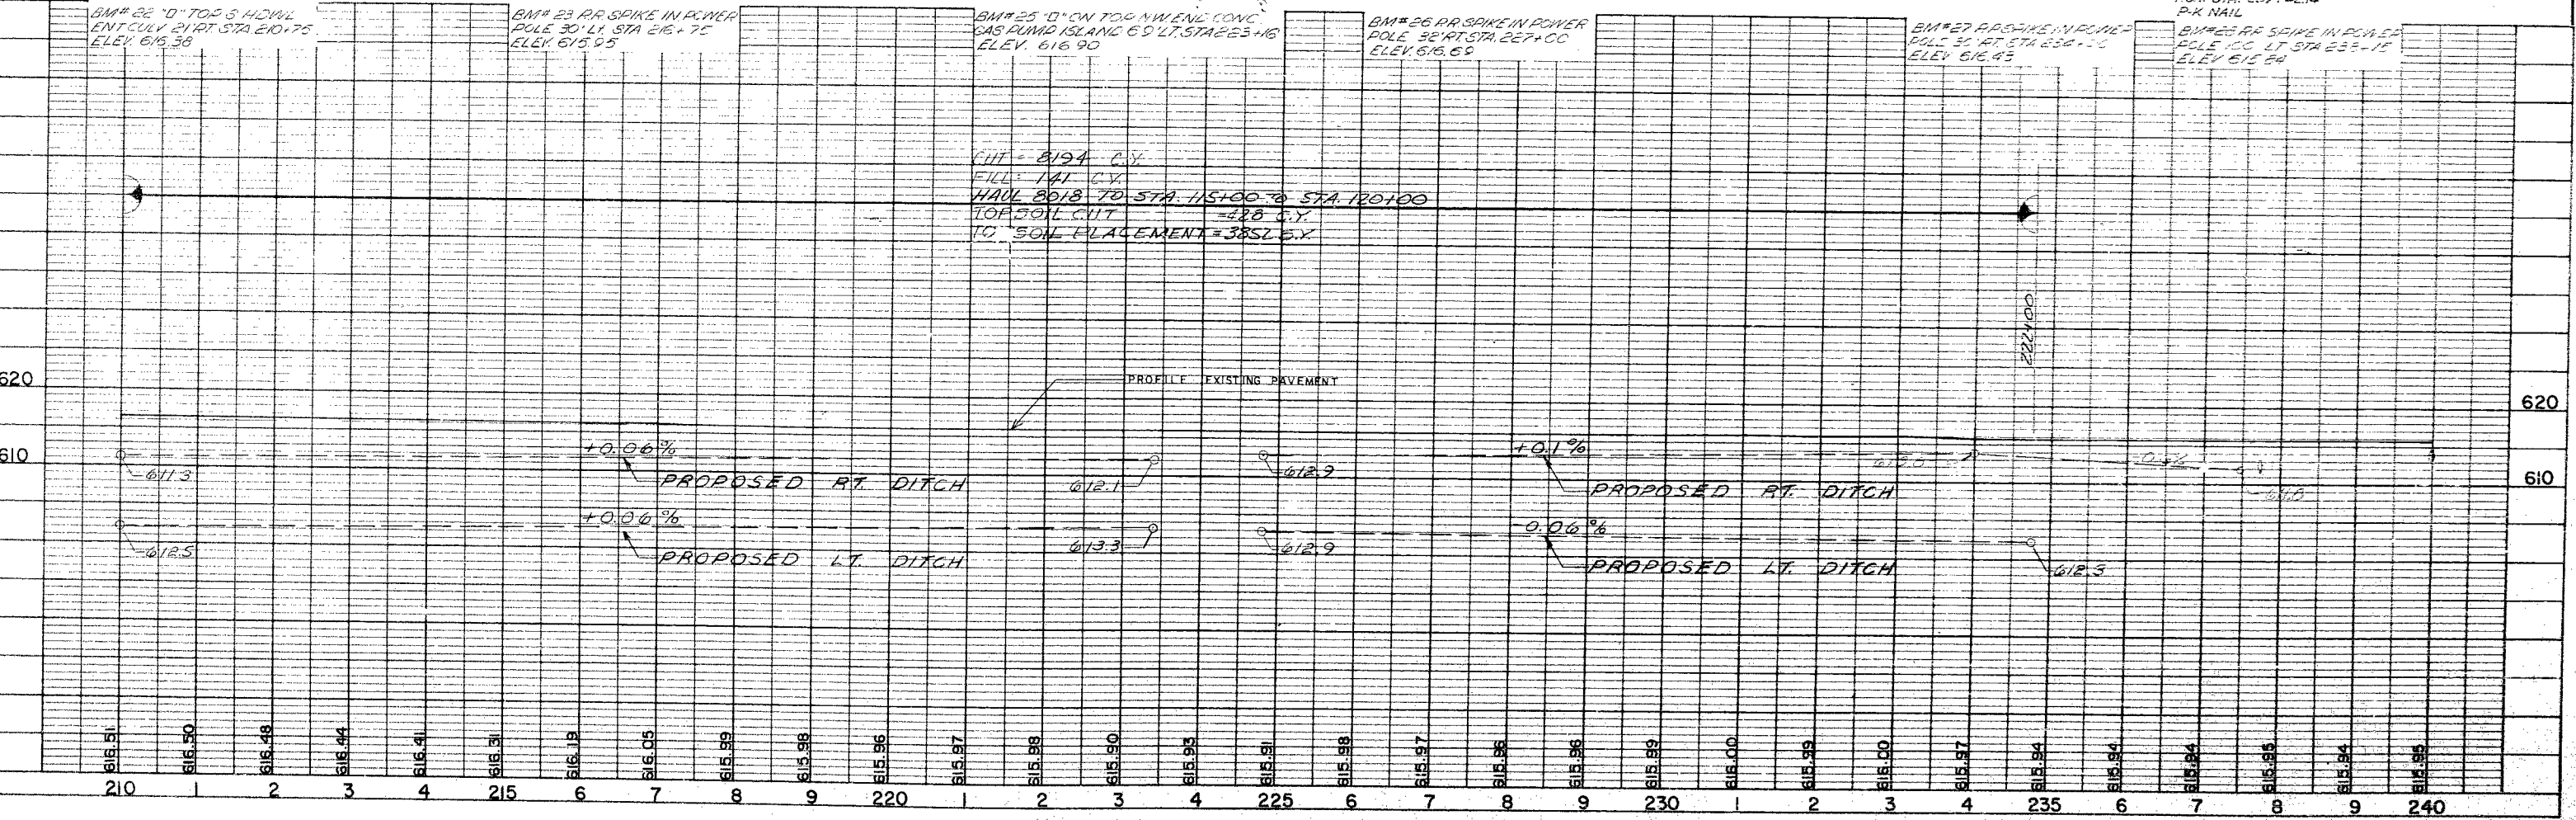 P-K NAIL
BM# 22 "□" TOP S HDWL
ENT CULV 21' RT. STA. 210+75
ELEV. 616.38
BM# 23 RR SPIKE IN POWER
POLE 30' LT. STA 216+75
ELEV. 615.95
BM# 25 "□" ON TOP NW END CONC.
GAS PUMP ISLAND 69' LT. STA 223+16
ELEV. 616.90
BM# 26 RR SPIKE IN POWER
POLE 32' RT STA. 227+00
ELEV. 616.69
BM# 27 RR SPIKE IN POWER
POLE RT. STA
ELEV 616.43
BM# 28 RR SPIKE IN POWER
POLE LT STA
ELEV 615.84
CUT = 8194 C.Y.
FILL = 141 C.Y.
HAUL 8018 TO STA. 115+00 TO STA. 120+00
TOPSOIL CUT =428 C.Y.
TO SOIL PLACEMENT = 3852 S.Y.
222+00
620
620
PROFILE EXISTING PAVEMENT
610
610
+0.06%
611.3
PROPOSED RT. DITCH
612.1
612.9
+0.1%
PROPOSED RT. DITCH
+0.06%
612.5
PROPOSED LT. DITCH
613.3
612.9
-0.06%
PROPOSED LT. DITCH
612.3
616.51 616.50 616.48 616.44 616.41 616.31 616.19 616.05 615.99 615.98 615.96 615.97 615.98 615.90 615.93 615.91 615.98 615.97 615.96 615.96 615.99 616.00 615.99 616.00 615.97 615.94 615.94 615.94 615.95 615.94 615.95
210 1 2 3 4 215 6 7 8 9 220 1 2 3 4 225 6 7 8 9 230 1 2 3 4 235 6 7 8 9 240